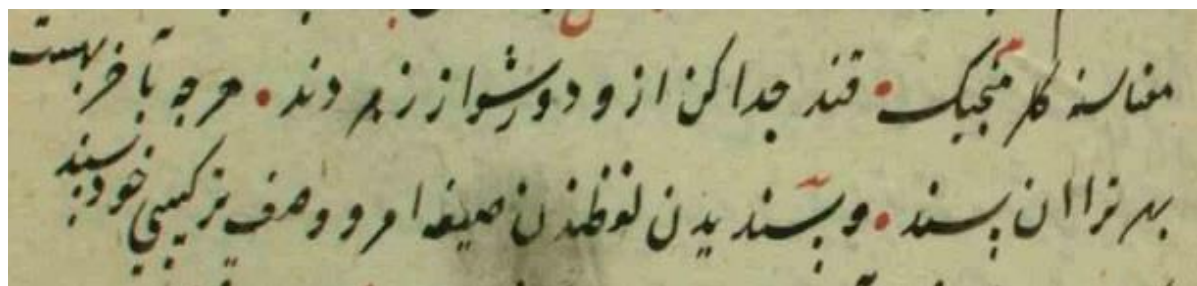 معناسنه کلر منجیک • قند جدا کن از و دور شو از زهر دند • هر چه بآخر بهست
بهر ترا ان پسند • و پسندیدن لفظندن صیغه امر و وصف ترکیبی خود پسند